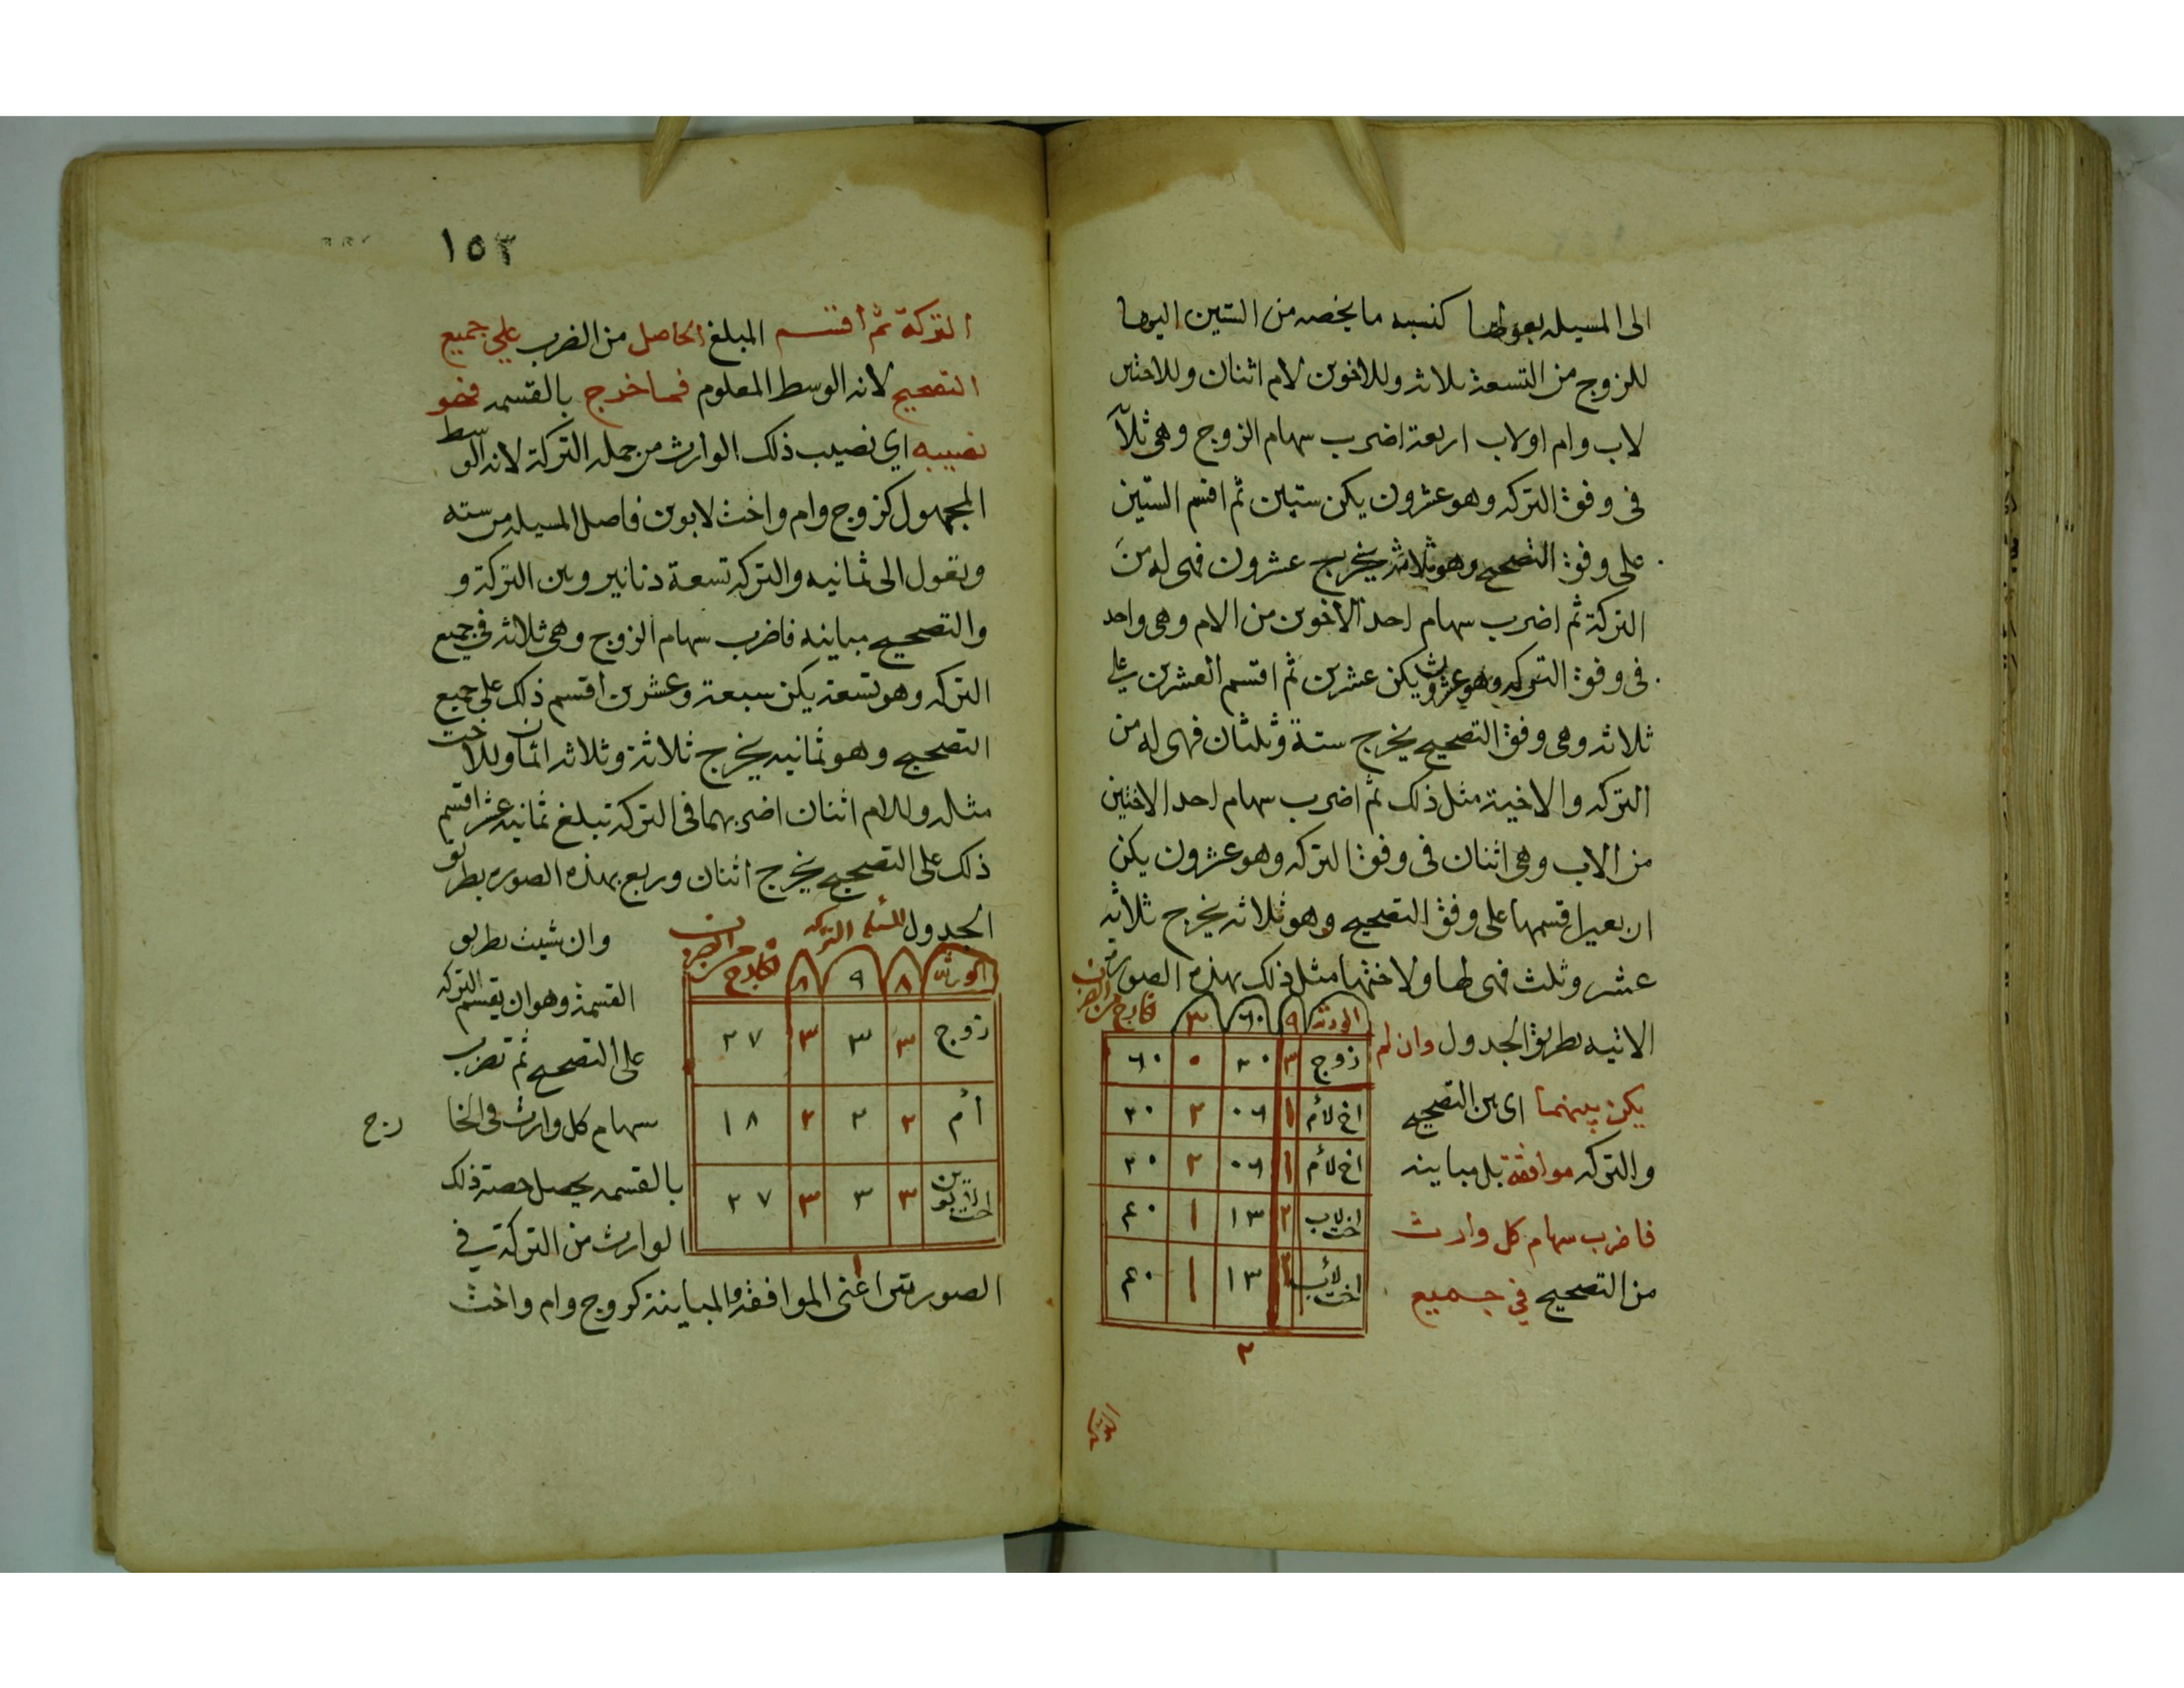 الى المسيله بعولها كنسبه ما يخصه من الستين اليها
للزوج من التسعة ثلاثه وللاخوين لام اثنان وللاختين
لاب وام اولاب اربعة اضرب سهام الزوج وهى ثلاثا
فى وفق التركه وهو عشرون يكن ستين ثم اقسم الستين
على وفق التصحيح وهو ثلاثه يخرج عشرون فهى له من
التركة ثم اضرب سهام احد الاخوين من الام وهى واحد
فى وفق التركه وهو عشرون يكن عشرين ثم اقسم العشرين على
ثلاثه وهى وفق التصحيح يخرج ستة وثلثان فهى له من
التركه والاخية مثل ذلك ثم اضرب سهام احد الاختين
من الاب وهى اثنان فى وفق التركه وهو عشرون يكن
اربعين اقسمها على وفق التصحيح وهو ثلاثه يخرج ثلاثه
عشر وثلث فهى لها ولاختها مثل ذلك بهذه الصورة
الاتيه بطريق الجدول وان لم
يكن بينهما اى بين التصحيح
والتركه موافقة بل مباينه
فاضرب سهام كل وارث
من التصحيح في جميع
الخارج من الضرب
الورثه ٩ ٦٠ ٣
زوج ٣ ٢٠ ٠ ٦٠
اخ لأم ١ ٠٦ ٢ ٢٠
اخ لأم ١ ٠٦ ٢ ٢٠
اخت لاب ٢ ١٣ ١ ٤٠
اخت لأب ٢ ١٣ ١ ٤٠
٣
١٥٣
التركة ثم اقسم المبلغ الحاصل من الضرب على جميع
التصحيح لانه الوسط المعلوم فما خرج بالقسمه فهو
نصيبه اي نصيب ذلك الوارث من جمله التركة لانه الوسط
المجهول كزوج وام واخت لابوين فاصل المسيله من سته
وتعول الى ثمانيه والتركه تسعة دنانير وبين التركة و
والتصحيح مباينه فاضرب سهام الزوج وهى ثلاثه فى جميع
التركه وهو تسعة يكن سبعة وعشرين اقسم ذلك على جميع
التصحيح وهو ثمانيه يخرج ثلاثة وثلاثه اثمان وللاخت
مثاله وللام اثنان اضربهما فى التركه تبلغ ثمانيه عشر اقسم
ذلك على التصحيح يخرج اثنان وربع بهذه الصوره بطريق
الجدول المسئله التركه
الخارج من الضرب
الورثه ٨ ٩ ٨
زوج ٣ ٣ ٣ ٢٧
أم ٢ ٢ ٢ ١٨
اخت لابوين ٣ ٣ ٣ ٢٧
١
وان شيت بطريق
القسمة وهو ان يقسم التركه
على التصحيح ثم تضرب
سهام كل وارث فى الخا
رج
بالقسمه يحصل حصة ذلك
الوارث من التركة في
الصورتين اعنى الموافقه والمباينة كزوج وام واخت